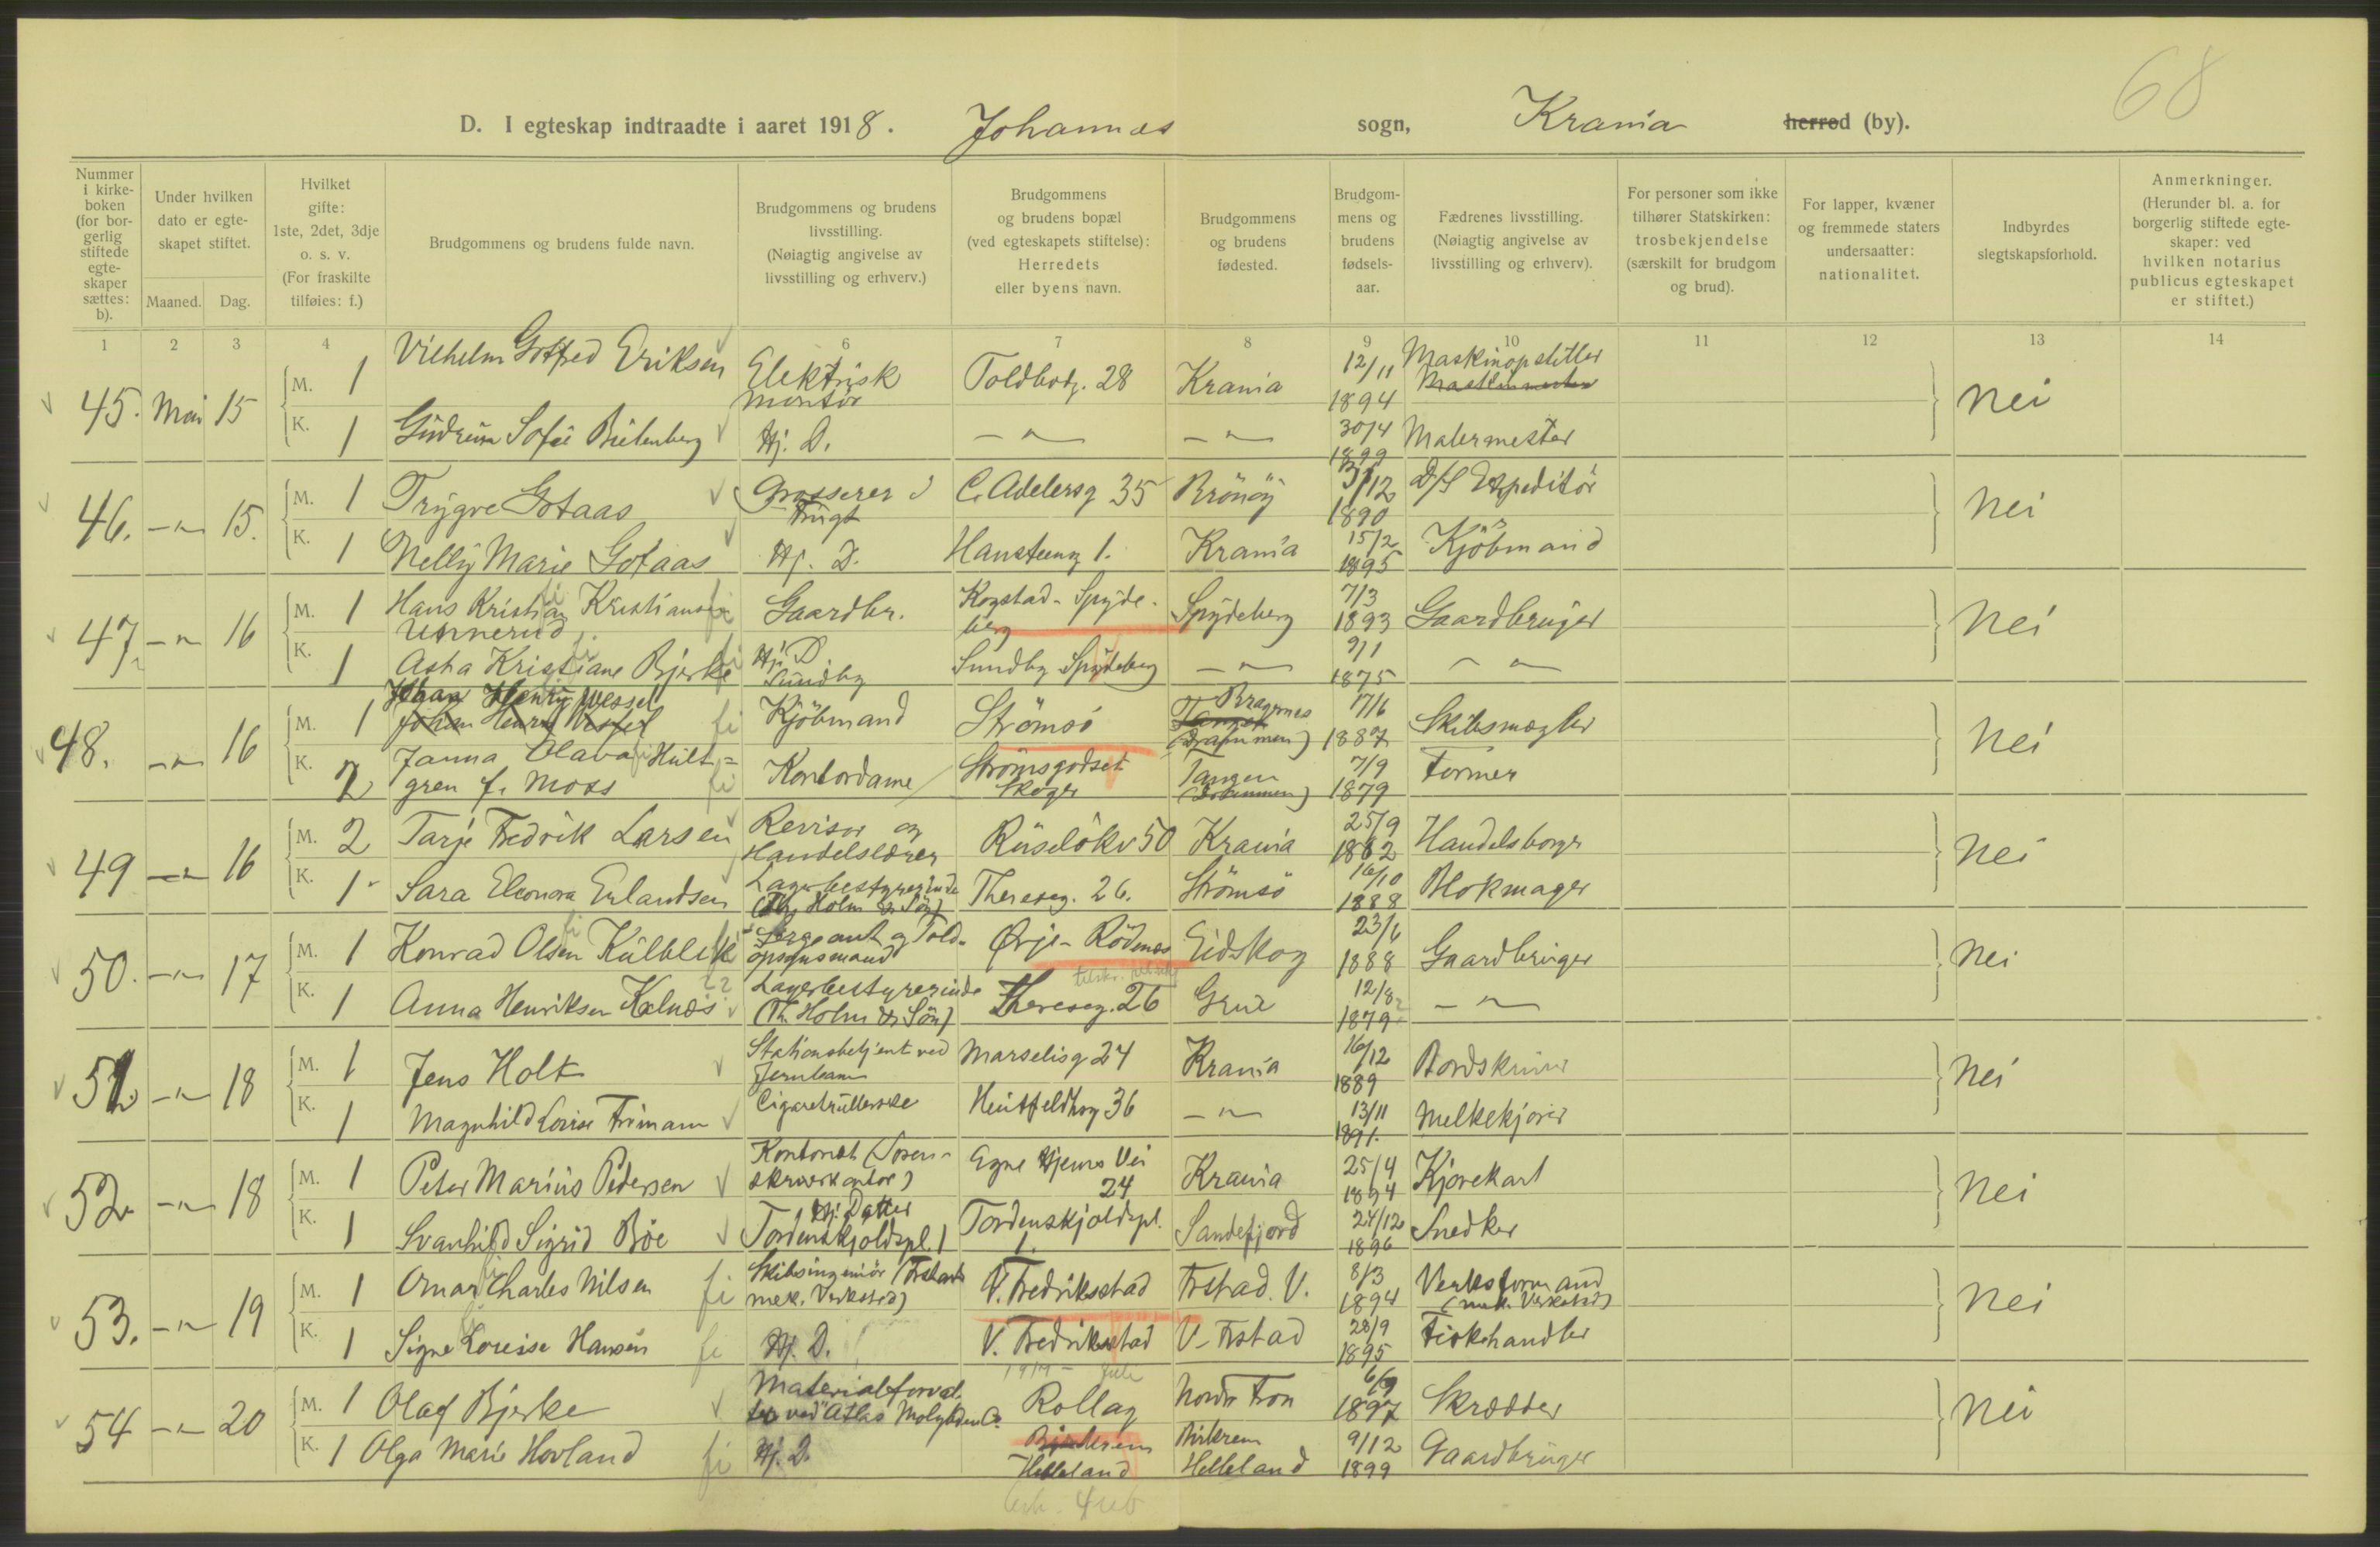 68
D. I egteskap indtraadte i aaret 1918. Johannes sogn, Krania herred (by).
Nummer i kirkeboken (for borgerlig stiftede egteskaper sættes: b).
Under hvilken dato er egteskapet stiftet.
Maaned. Dag.
Hvilket gifte: 1ste, 2det, 3dje o. s. v. (For fraskilte tilføies: f.)
Brudgommens og brudens fulde navn.
Brudgommens og brudens livsstilling. (Nøiagtig angivelse av livsstilling og erhverv.)
Brudgommens og brudens bopæl (ved egteskapets stiftelse): Herredets eller byens navn.
Brudgommens og brudens fødested.
Brudgommens og brudens fødselsaar.
Fædrenes livsstilling. (Nøiagtig angivelse av livsstilling og erhverv).
For personer som ikke tilhører Statskirken: trosbekjendelse (særskilt for brudgom og brud).
For lapper, kvæner og fremmede staters undersaatter: nationalitet.
Indbyrdes slegtskapsforhold.
Anmerkninger. (Herunder bl. a. for borgerlig stiftede egteskaper: ved hvilken notarius publicus egteskapet er stiftet.)
1 2 3 4 6 7 8 9 10 11 12 13 14
45. Mai 15 M. 1 Vilhelm Gotfred Eriksen Elektrisk montör Toldbodg. 28 Krania 12/11 1894 Maskinopsitter nei
K. 1 Gudrun Sofie Bülenberg Hj. D. -"- -"- 30/4 1899 Malermester
46. -"- 15. M. 1 Trygve Gotaas Grosserer i Frugt C. Adelersg 35 Brönöy 31/12 1890 D/S Expeditör nei
K. 1 Nelly Marie Gotaas Hj. D. Hansteensg 1. Krania 15/2 1895 Kjöbmand
47. -"- 16 M. 1 Hans Kristian Kristiansen Unnerud Gaardbr. Kogstad - Spydeberg Spydeberg 7/3 1893 Gaardbruger nei
K. 1 Asta Kristiane Bjerke Hj. D Sundby Sundby Spydeberg -"- 9/1 1875 -"-
48. -"- 16 M. 1 Johan Henry Wessel Kjöbmand Strömsö Bragernes (Drammen) 17/6 1887 Skibsmægler nei
K. 2 Janna Olava Hultgren f. Moss Kontordame Strömsgodset Skoger Tangen (Drammen) 7/9 1879 Former
49 -"- 16 M. 2 Tarje Fredrik Larsen Revisor og Handelslærer Rüselökv 50 Krania 25/9 1882 Handelsborger nei
K. 1 Sara Eleonora Erlandsen Lagerbestyrerinde (Th. Holm & Sön) Theresesg. 26. Strömsö 16/10 1888 Blokmager
50. -"- 17 M. 1 Konrad Olsen Külblik Sergeant og Toldopsynsmand Ørje - Rödenes Eidskog 23/6 1888 Gaardbruger nei
K. 1 Anna Henriksen Kalnæs Lagerbestyrerinde (Th. Holm & Sön) Theresesg. 26 Grue 12/8 1879 -"-
51. -"- 18 M. 1 Jens Holt Stationsbetjent ved Jernbanen Marselisg 24 Krania 16/12 1889 Bordskriver nei
K. 1 Magnhild Lovise Frimann Cigaretrullerske Heitfeldtsg 36 -"- 13/11 1891. Melkekjører
52 -"- 18 M. 1 Peter Marius Pedersen Kontorist (Sorenskriverkontor) Egne Hjems Vei 24 Krania 25/4 1894 Kjørekarl nei
K. 1 Svanhild Sigrid Bøe Hj. Datter Tordenskjoldspl. 1 Tordenskjoldspl. 1. Sandefjord 24/12 1896 Snedker
53. -"- 19 M. 1 Omar Charles Nilsen Skibsingeniör (Frstads mek. Verksted) V. Fredriksstad Frstad. V. 8/3 1894 Verksformand (mek. Verksted) nei
K. 1 Signe Lovise Hansen Hj. D. V. Fredriksstad V. Frstad 28/9 1895 Fiskehandler
54 -"- 20 M. 1 Olaf Bjerke Materialforvalter ved "Atlas Molybden Co. Rollag Nordr Fron 6/9 1897 Skrædder nei
K. 1 Olga Marie Hovland Hj. D. Helleland Birkrem Helleland 9/12 1899 Gaardbruger